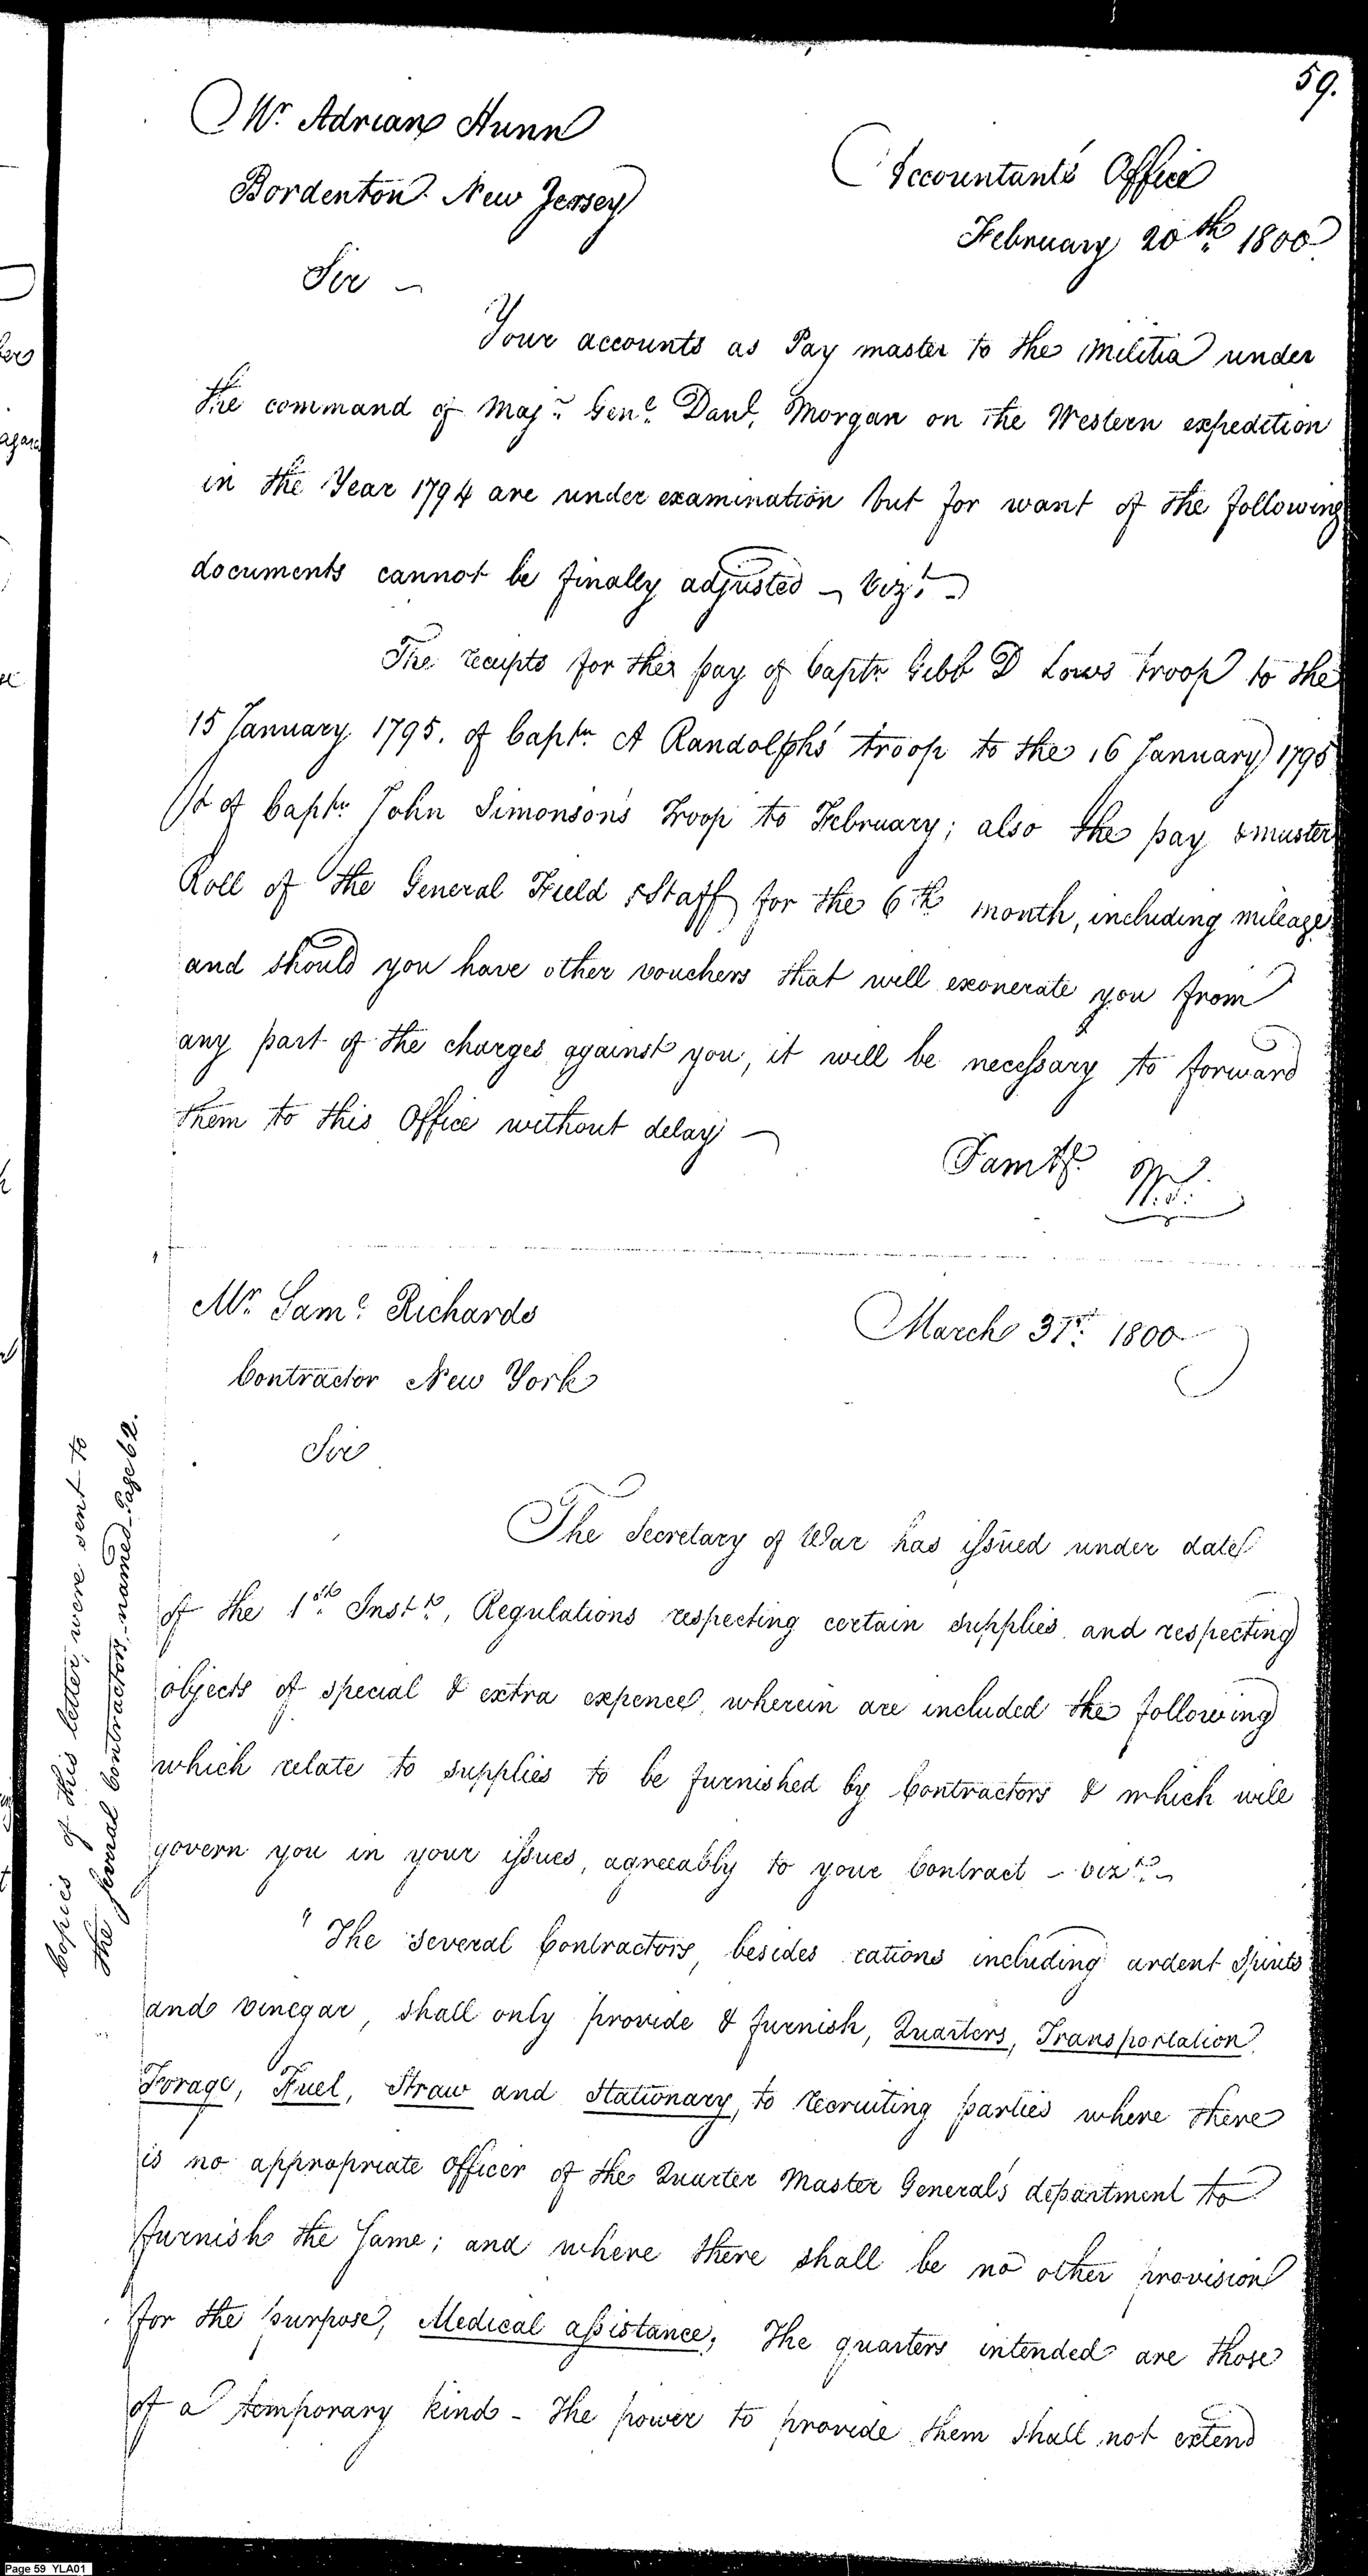 59.
Mr. Adrian Hunn
Bordenton New Jersey
Accountants' Office
February 20th. 1800
Sir —
Your accounts as Pay master to the Militia under
the command of Majr. Genl. Danl. Morgan on the Western expedition
in the Year 1794 are under examination but for want of the following
documents cannot be finally adjusted — Vizt. —
The receipts for the pay of Captn. Gibb D Lows troop to the
15 January 1795. of Captn. A Randolphs' troop to the 16 January 1795
& of Captn. John Simonson's Troop to February; also the pay & muster
Roll of the General Field & Staff for the 6th month, including mileage
and should you have other vouchers that will exonerate you from
any part of the charges against you, it will be necessary to forward
them to this Office without delay —
I am &c.
W.S.
Mr. Saml. Richards
Contractor New York
March 31st. 1800
Sir
The Secretary of War has issued under date
of the 1st. Instt., Regulations respecting certain supplies and respecting
objects of special & extra expence, wherein are included the following
which relate to supplies to be furnished by Contractors & which will
govern you in your issues, agreeably to your Contract — vizt. —
" The several Contractors, besides rations including ardent Spirits
and vinegar, shall only provide & furnish, Quarters, Transportation,
Forage, Fuel, Straw and Stationary, to recruiting parties where there
is no appropriate officer of the Quarter Master General's department to
furnish the same; and where there shall be no other provision
for the purpose, Medical assistance, The quarters intended are those
of a temporary kind - The power to provide them shall not extend
Copies of this letter, were sent to
the several Contractors, named - Page 62.
Page 59 YLA01